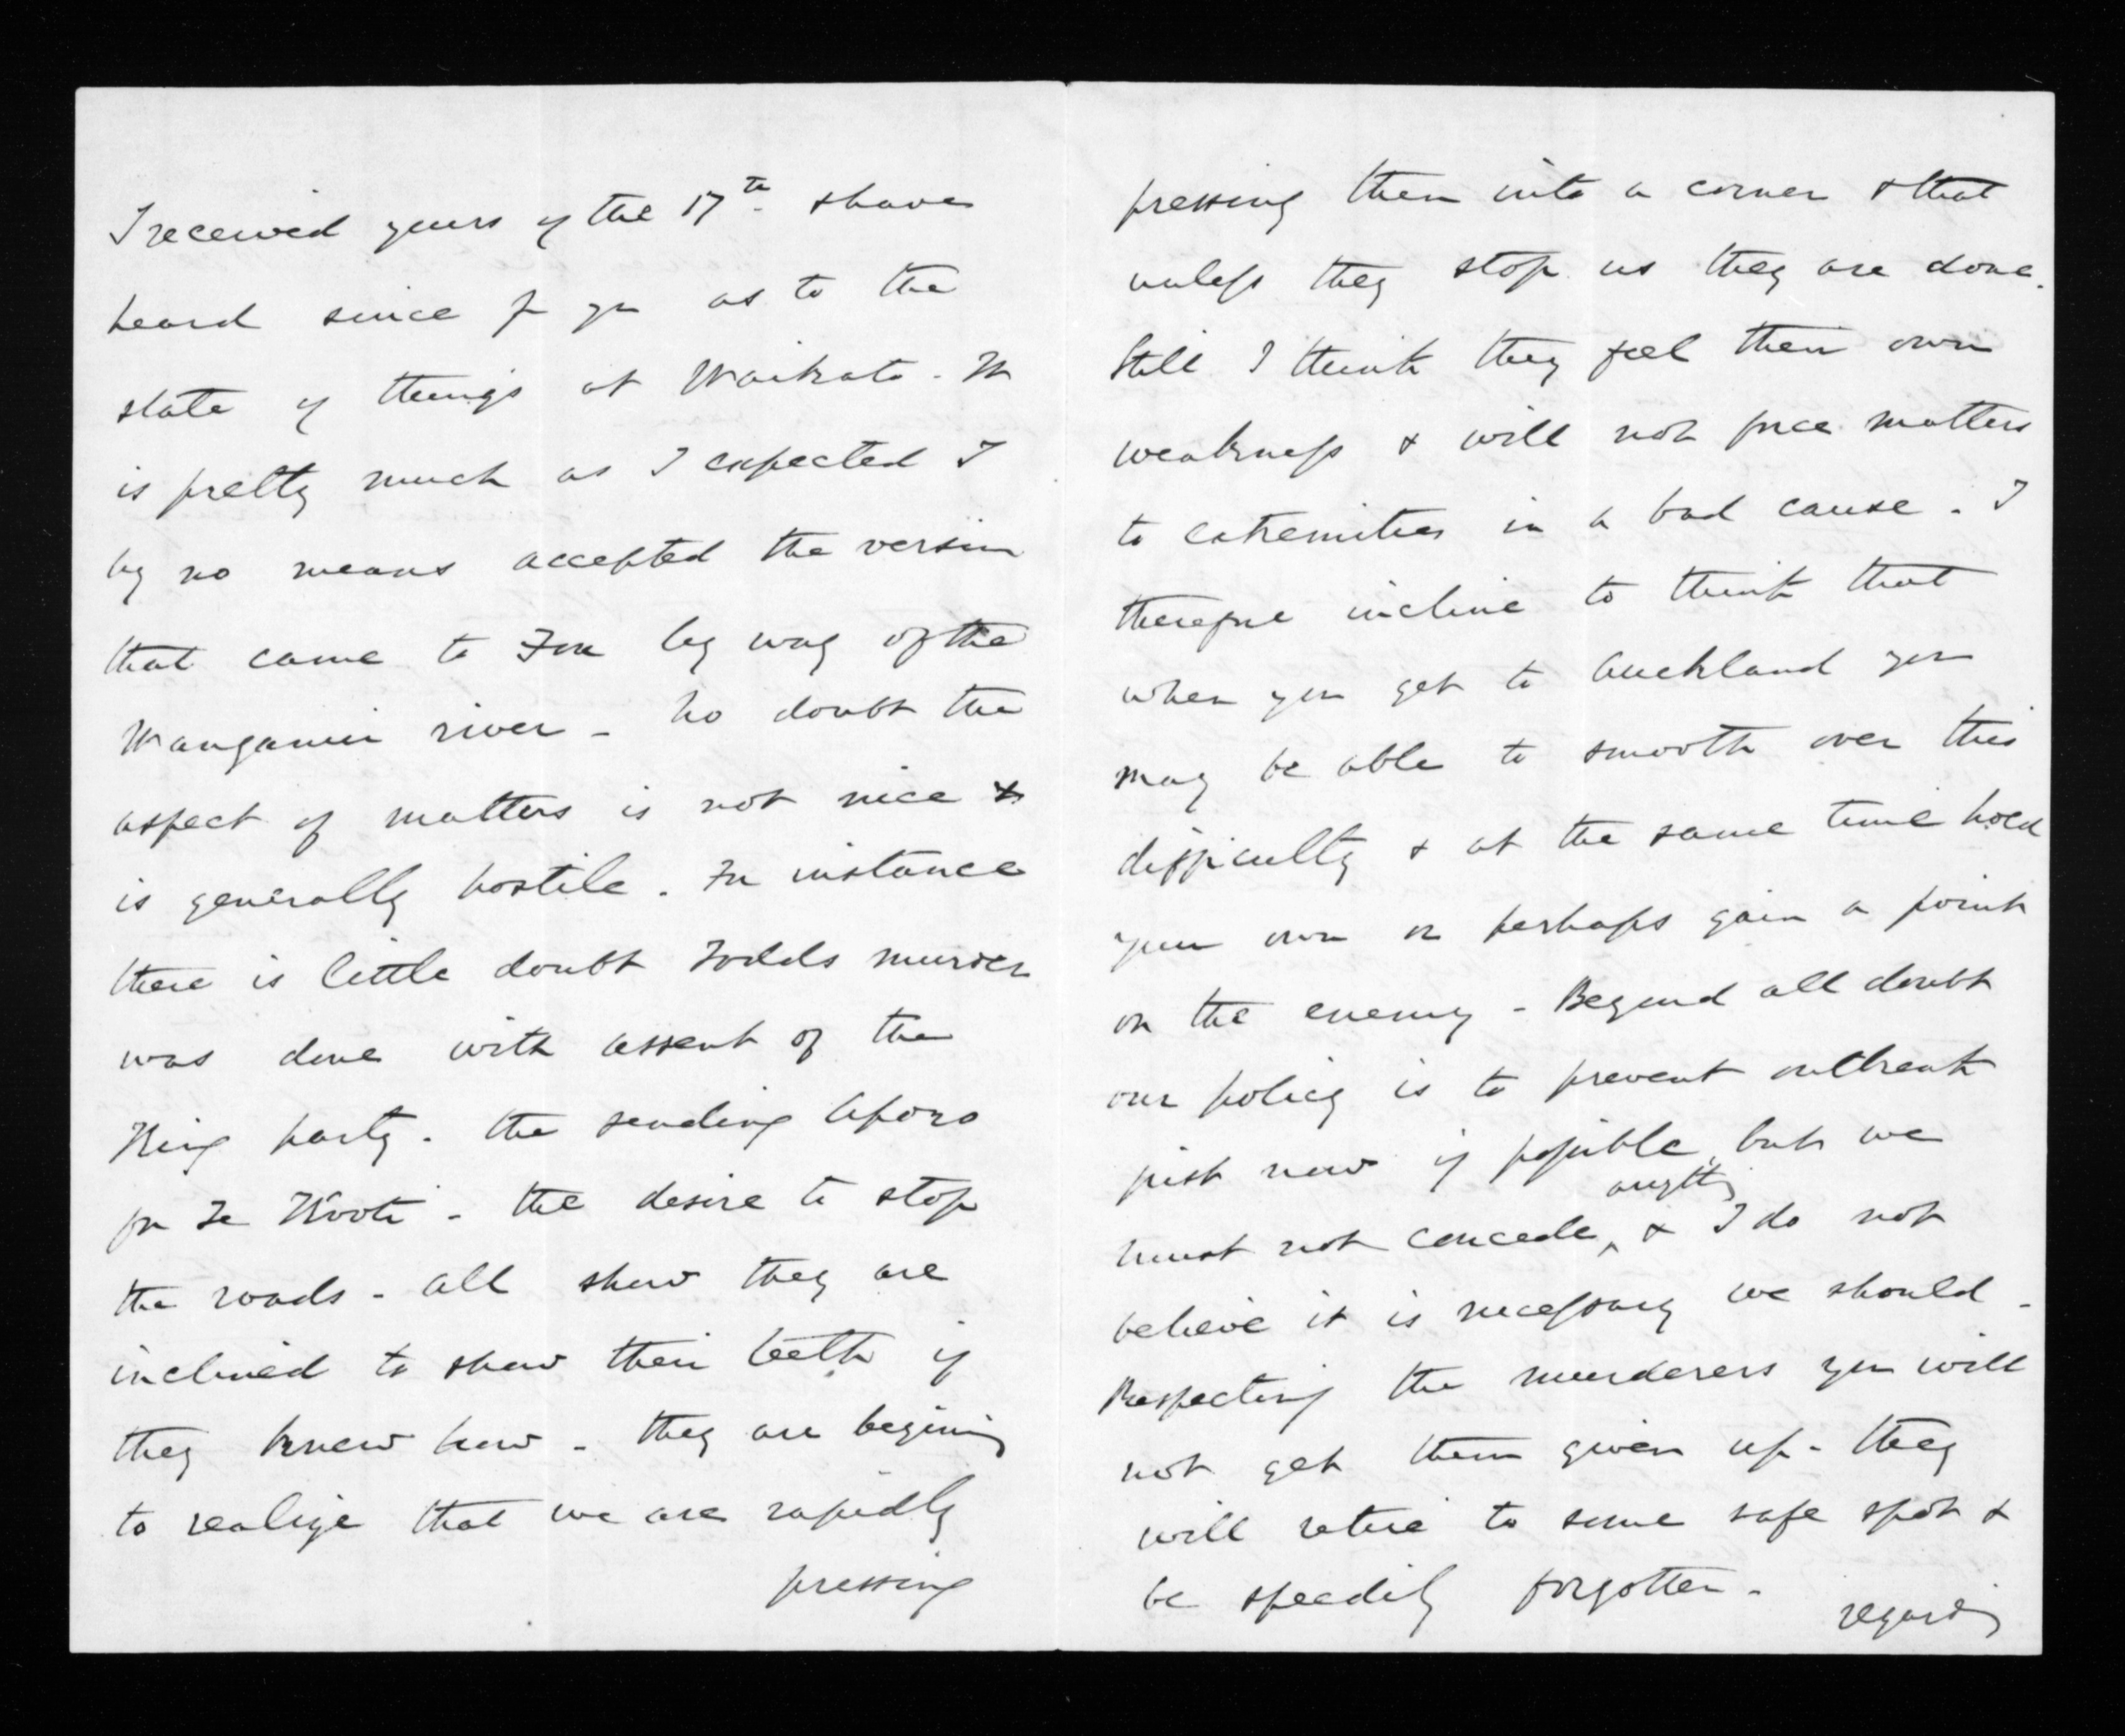 I received yours of the 17th. & have
heard since fm yr as to the
state of things at Waikato. It
is pretty much as I expected I
by no means accepted the version
that came to Fox by way of the
Wanganui river - No doubt the
aspect of matters is not nice &
is generally hostile. For instance
there is little doubt Todds murder
was done with assent of the
King party. the sending Aporo
for Te Kooti - the desire to stop
the roads - all show they are
inclined to show their teeth if
they knew how - they are begining
to realize that we are rapidly
pressing
pressing them into a corner & that
unless they stop us they are done.
Still I think they feel their own
weakness & will not force matters
to extremities in a bad cause. I
therefore incline to think that
when you get to Auckland you
may be able to smooth over this
difficulty & at the same time hold
your own or perhaps gain a point
on the enemy - Beyond all doubt
our policy is to prevent outbreak
just now if possible, but we
must not concede anything & I do not
believe it is necessary we should -
Respecting the murderers you will
not get them given up - they
will retire to some safe spot &
be speedily forgotten -
regarding